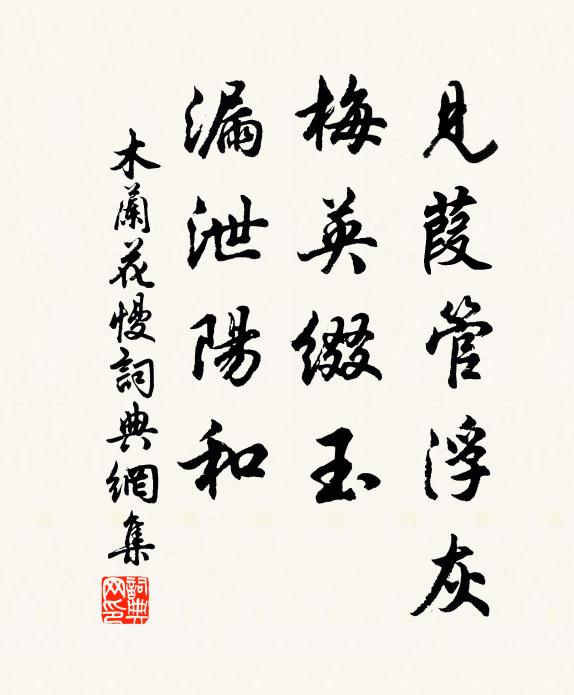 見葭管浮灰
梅英綴玉
漏泄陽和
木蘭花慢詞典網集
詞典网印